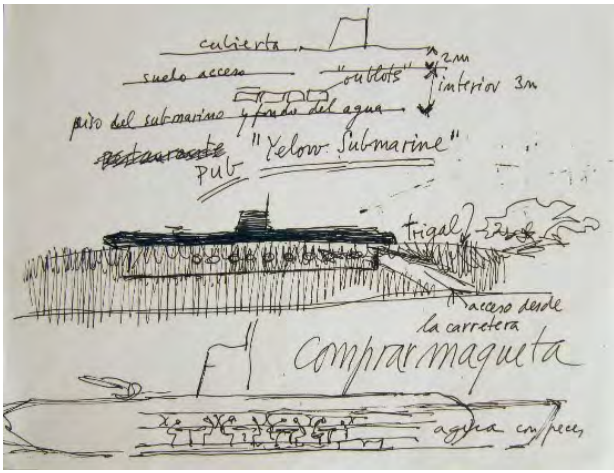 cubierta
2m
suelo acceso "oublots" interior 3m
piso del submarino y fondo del agua
restaurante
pub "Yelow Submarine"
trigal
acceso desde
la carretera
Comprar maqueta
agua con peces